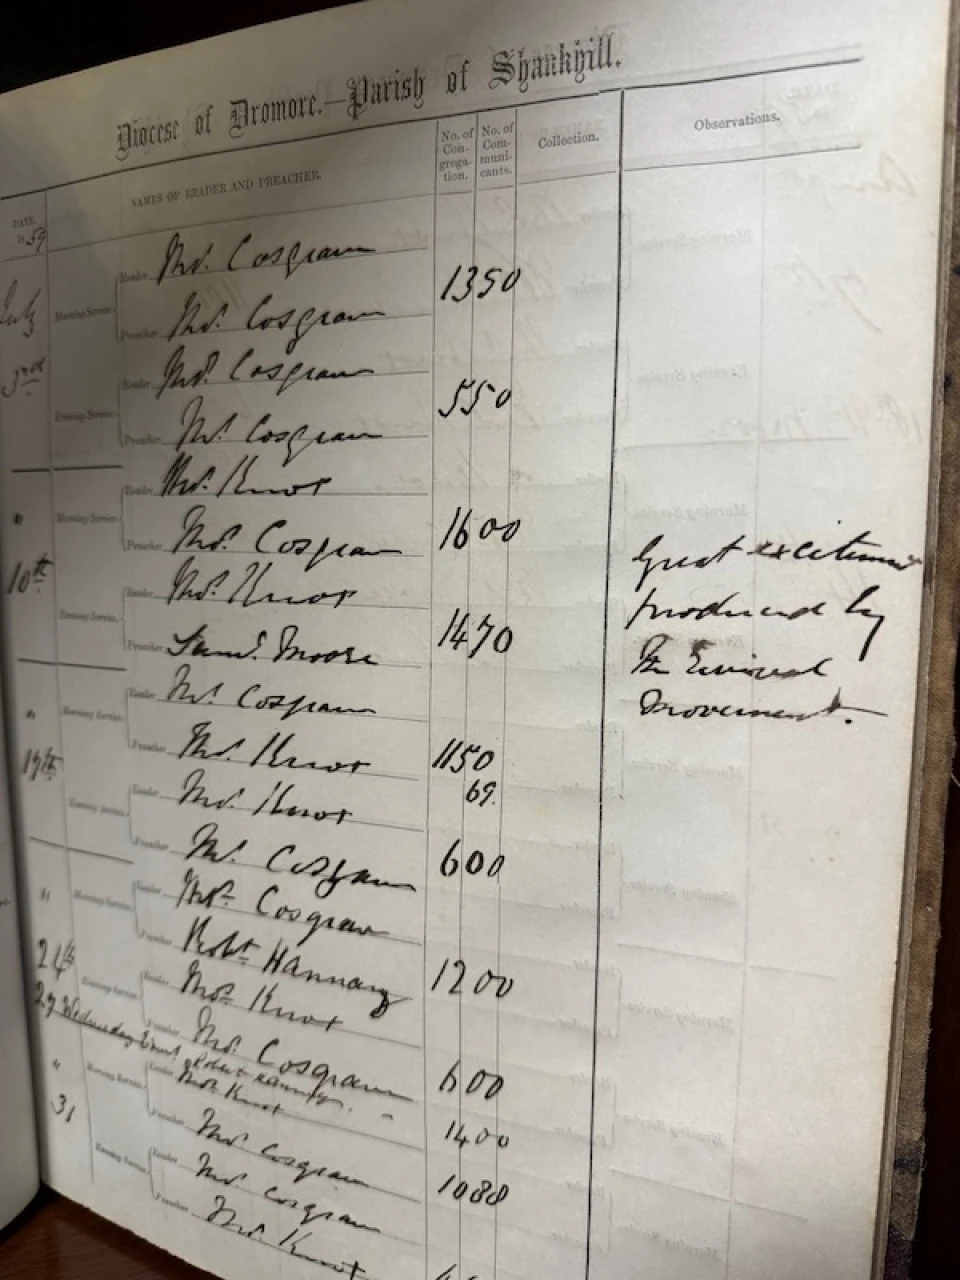 Diocese of Dromore.—Parish of Shankhill.
DATE. 1859
NAMES OF READER AND PREACHER.
No. of Congregation.
No. of Communicants.
Collection.
Observations.
July 3rd
Morning Service
Reader Mr. Cosgrave
Preacher Mr. Cosgrave
1350
Evening Service
Reader Mr. Cosgrave
Preacher Mr. Cosgrave
550
" 10th
Morning Service
Reader Mr. Knox
Preacher Mr. Cosgrave
1600
Evening Service
Reader Mr. Knox
Preacher Saml. Moore
1470
Great excitement
produced by
The Revival
Movement.
" 17th
Morning Service
Reader Mr. Cosgrave
Preacher Mr. Knox
1150
69.
Evening Service
Reader Mr. Knox
Preacher Mr. Cosgrave
600
" 24th
Morning Service
Reader Mr. Cosgrave
Preacher Robt. Hannay
1200
Evening Service
Reader Mr. Knox
Preacher Mr. Cosgrave
600
27 Wednesday Robert Hannay. -
1400
" 31
Morning Service
Reader Mr. Knox
Preacher Mr. Cosgrave
1088
Evening Service
Reader Mr. Cosgrave
Preacher Mr. Knox